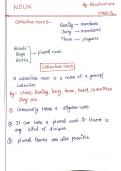 NOUN
Collective noun :-
Family → members
Jury → members
Team → players
Birds
Boys
Books
→ plural noun
Collective noun
A collective noun is a name of a group/
collection
eg:- class, family, bevy, team, head, committee
Jury etc
① Generally takes a singular verb
② It can take a plural verb if there is
any kind of division
③ plural forms are also possible.